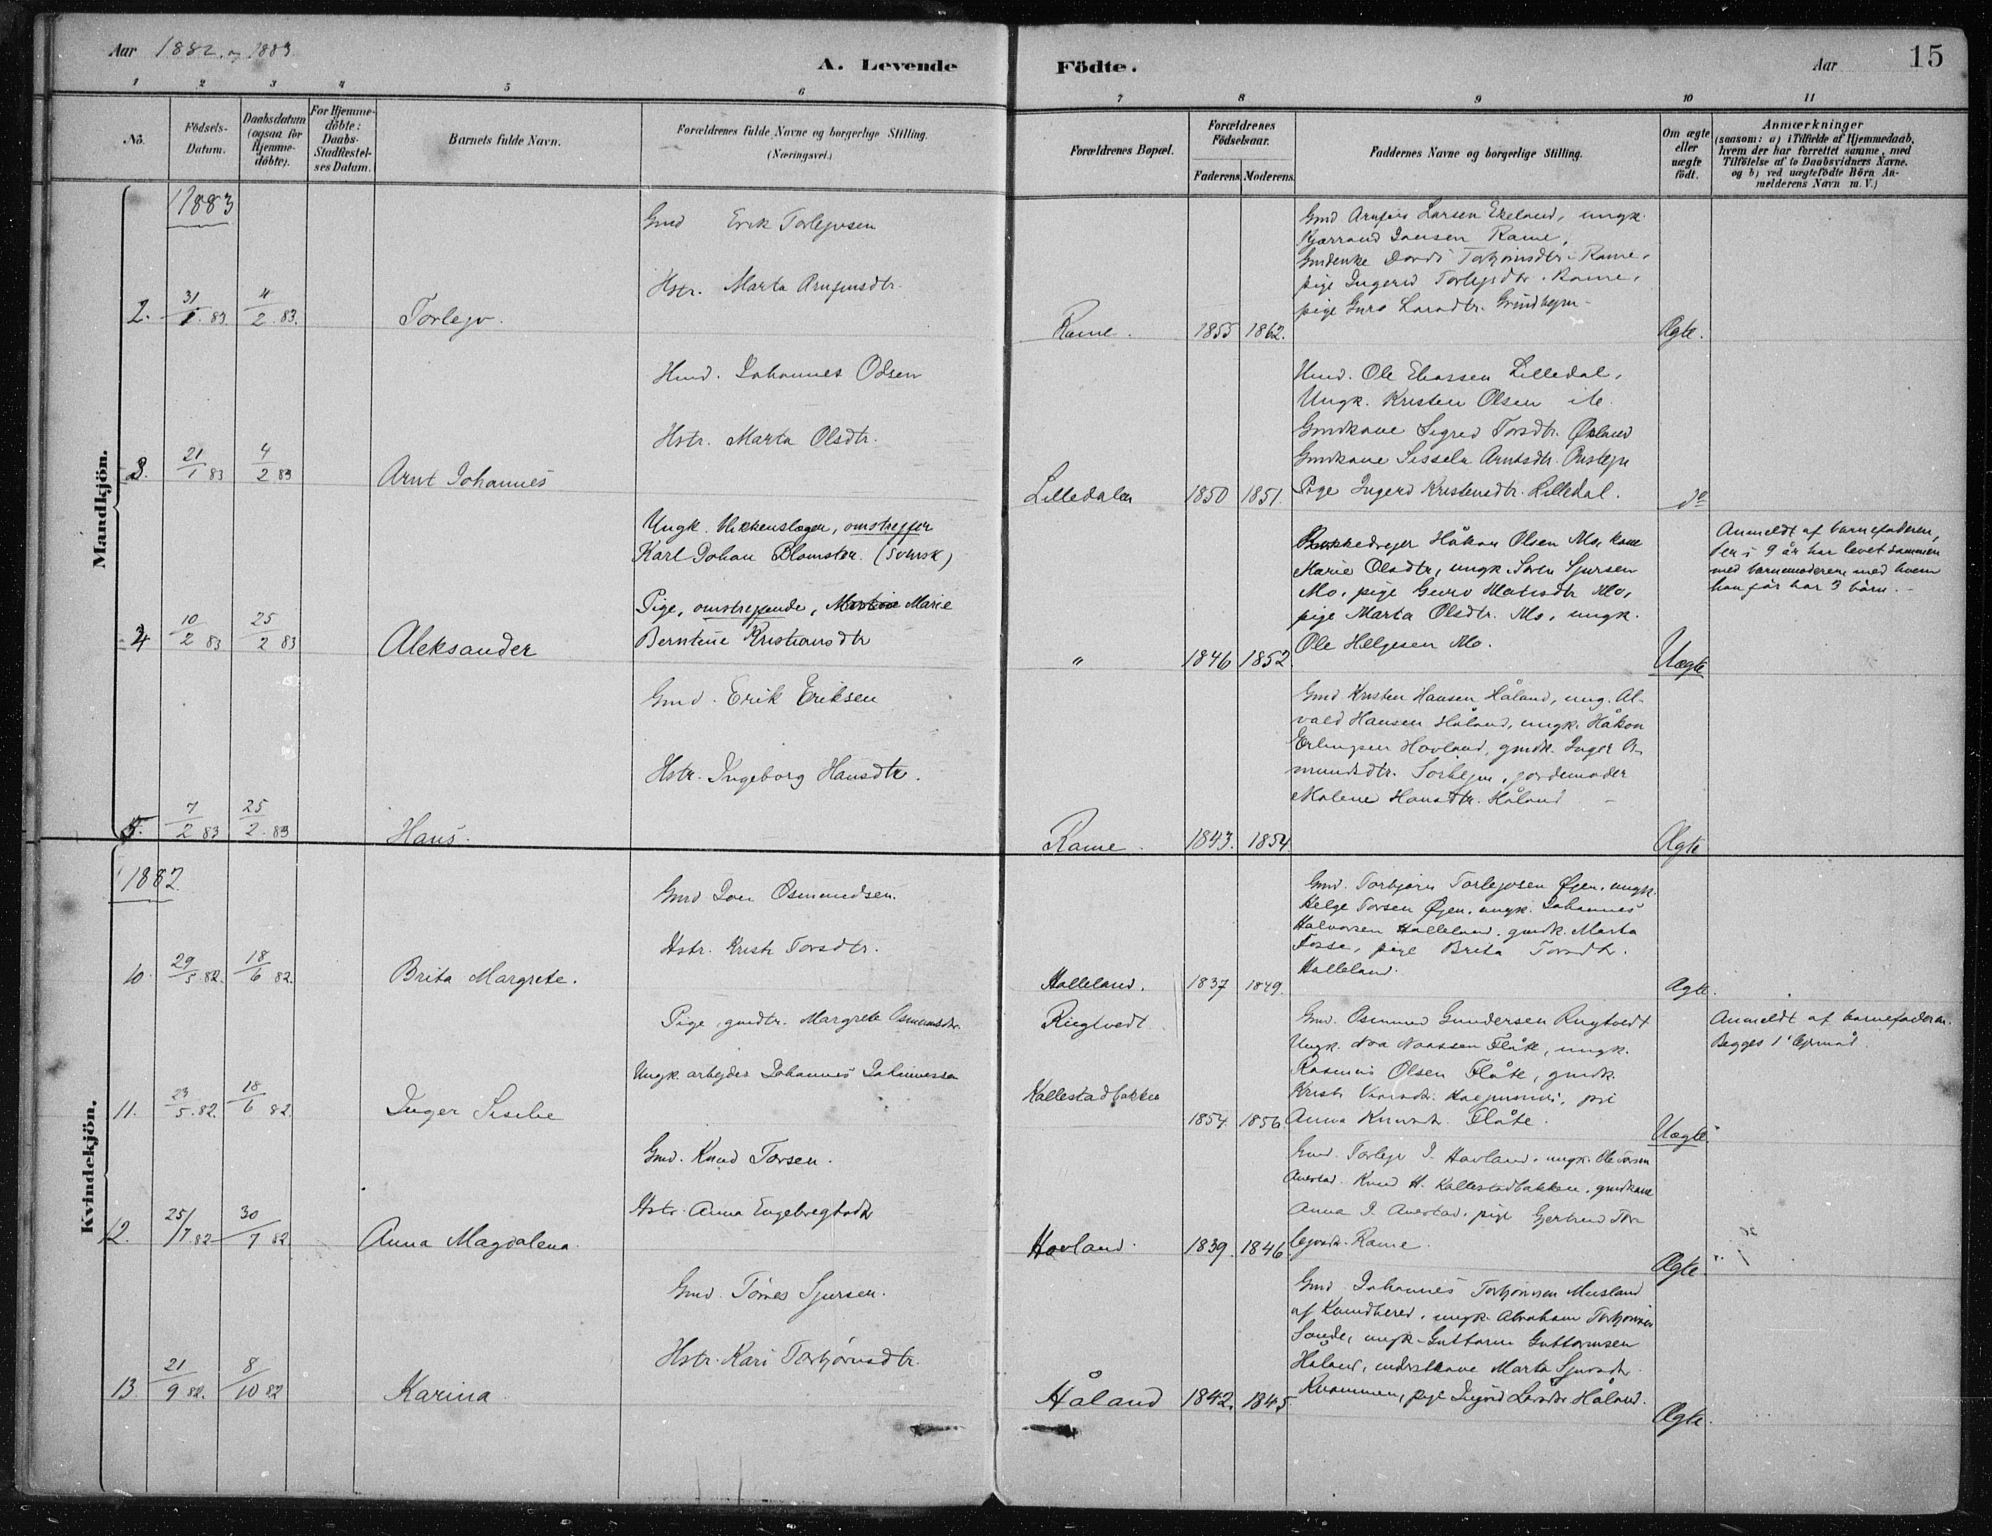 Aar 1882 og 1883
A. Levende Födte.
Aar
15
1 2 3 4 5 6 7 8 9 10 11
No.
Födsels-Datum.
Daabsdatum (ogsaa for Hjemme-döbte).
For Hjemme-döbte: Daabs-Stadfæstel-ses Datum.
Barnets fulde Navn.
Forældrenes fulde Navne og borgerlige Stilling.
(Næringsvei.)
Forældrenes Bopæl.
Forældrenes Födselsaar.
Faderens. Moderens.
Faddernes Navne og borgerlige Stilling.
Om ægte eller uægte födt.
Anmærkninger
(saasom: a) i Tilfælde af Hjemmedaab,
hvem der har forrettet samme, med
Tilföielse af to Daabsvidners Navne.
og b) ved uægtefödte Börn An-
melderens Navn m. V.)
Mandkjön.
1883
2. 31/1 83. 4/2 83. Torlejv.
Gmd Erik Torlejvsen
Hstr. Marta Arnfinsdtr.
Rame. 1855 1862.
Gmd Arnfin Larsen Ekeland, ungk.
Jansen Rame,
Gmdenke Torbjørnsdtr. Rame,
pige Ingerid Torlejsdtr. Rame,
pige Guro Larsdtr. Grindhejm
Ægte.
3. 21/1 83 4/2 83 Arnt Johannes
Hmd. Johannes Odsen
Hstr. Marta Olsdtr.
Lilledalen 1850 1851.
Hmd. Ole Eliassen Lilledal,
Ungk. Kristen Olsen
Gmdkone Sigrid Torsdtr. Økland
Gmdkone Sissela Arntsdtr.
Pige Ingerd Kristensdtr. Lilledal.
do
4 10/2 83 25/2 83 Aleksander
Ungk. blikkenslager, omstrejfer
Karl Johan Blomster. (Svensk)
Pige, omstrejfende, Marie
Berntine Kristiansdtr
" 1846 1852
Håkon Olsen Mo, kone
Marie Olsdtr, ungk. Søren Sjursen
Mo, pige Guro Matisdtr Mo,
pige Marta Olsdtr. Mo, ungk.
Ole Helgesen Mo.
Uægte
Anmeldt af barnefaderen,
der i 9 år har levet sammen
med barnemoderen, med hvem
han før har 3 børn.
5. 7/2 83 25/2 83 Hans.
Gmd. Erik Eriksen
Hstr. Ingeborg Hansdtr.
Rame. 1843. 1854.
Gmd Kristen Hansen Håland, ung. Al-
vald Hansen Håland, ungk. Håkon
Erlingsen Hovland, gmdk. Inger A-
mundsdtr. Sørhejm, jordemoder
Malene Hansdtr. Håland
Ægte
Kvindekjön.
1882
10. 29/5 82. 18/6 82. Brita Margrete.
Gmd Jon Osmundsen.
Hstr. Kristi Torsdtr.
Halleland. 1837 1849.
Gmd. Torbjørn Torlejvsen Øjen, ungk.
Helge Torsen Øjen, ungk. Johannes
Halvorsen Halleland, gmdk. Marta
Fosse, pige Brita Torsdtr.
Halleland.
Ægte.
11. 23/5 82. 18/6 82 Inger Sisilie
Pige, gmdtr. Margrete Osmundsdtr.
Ungk. arbejder Johannes Johannessen
Ringtvedt.
Kallestadbakken
1854. 1856.
Gmd. Osmund Gundersen Ringtvedt
Ungk. Noa Naassen Flåte, ungk.
Rasmus Olsen Flåte, gmdk.
Kristi
Anna Flåte.
Uægte.
Anmeldt af barnefaderen.
Begges 1' lejrmål.
12. 25/7 82 30/7 82 Anna Magdalena.
Gmd. Knud Torsen.
Hstr. Anna Engebregtsdtr
Hovland. 1839. 1846
Gmd. Torlejv I. Hovland, ungk. Ole Torsen
Anestad. Knud H. Kallestadbakken, gmdkone
Anna I. Anestad, pige Gjertrud Tor
lejvsdtr. Rame.
Ægte.
13 21/9 82. 8/10 82 Karina.
Gmd. Tømes Sjursen.
Hstr. Kari Torbjørnsdtr.
Håland 1842. 1845
Gmd. Johannes Torbjørnsen Musland
af Kvindherred, ungk. Abraham Torbjørnsen
Sande, ungk. Guttorm Guttormsen
Håland, Marta Sjursdtr.
Kvammen, pige Ingrid Larsdtr Håland.
Ægte.